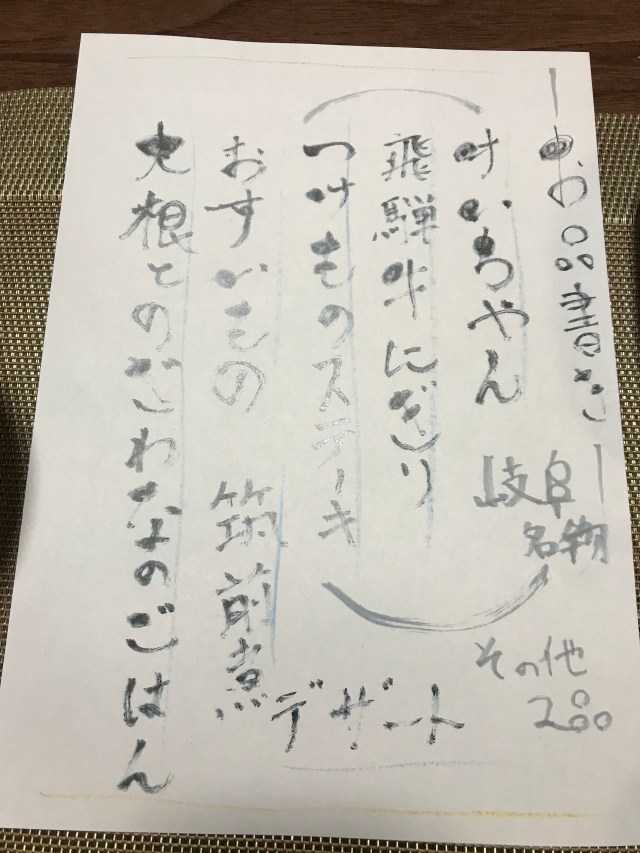 ーお品書きー
けいちゃん
岐阜
名物
飛騨牛にぎり
つけものステーキ
おすいもの 筑前煮
大根とのざわなのごはん
デザート
その他